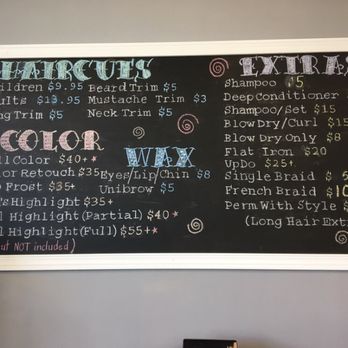 HAIRCUTS
ildren $9.95 Beard Trim $5
ults $13.95 Mustache Trim $3
ng Trim $5 Neck Trim $5
COLOR
ll Color $40+*
or Retouch $35+
Frost $35+
's Highlight $35+
l Highlight (Partial) $40*
l Highlight (Full) $55+*
ut NOT included)
WAX
Eyes/Lip/Chin $8
Unibrow $5
EXTRAS
Shampoo $5
Deep Conditioner
Shampoo/Set $15
Blow Dry/Curl $15
Blow Dry Only $8
Flat Iron $20
UpDo $25+
Single Braid $5
French Braid $10
Perm With Style $
(Long Hair Ext